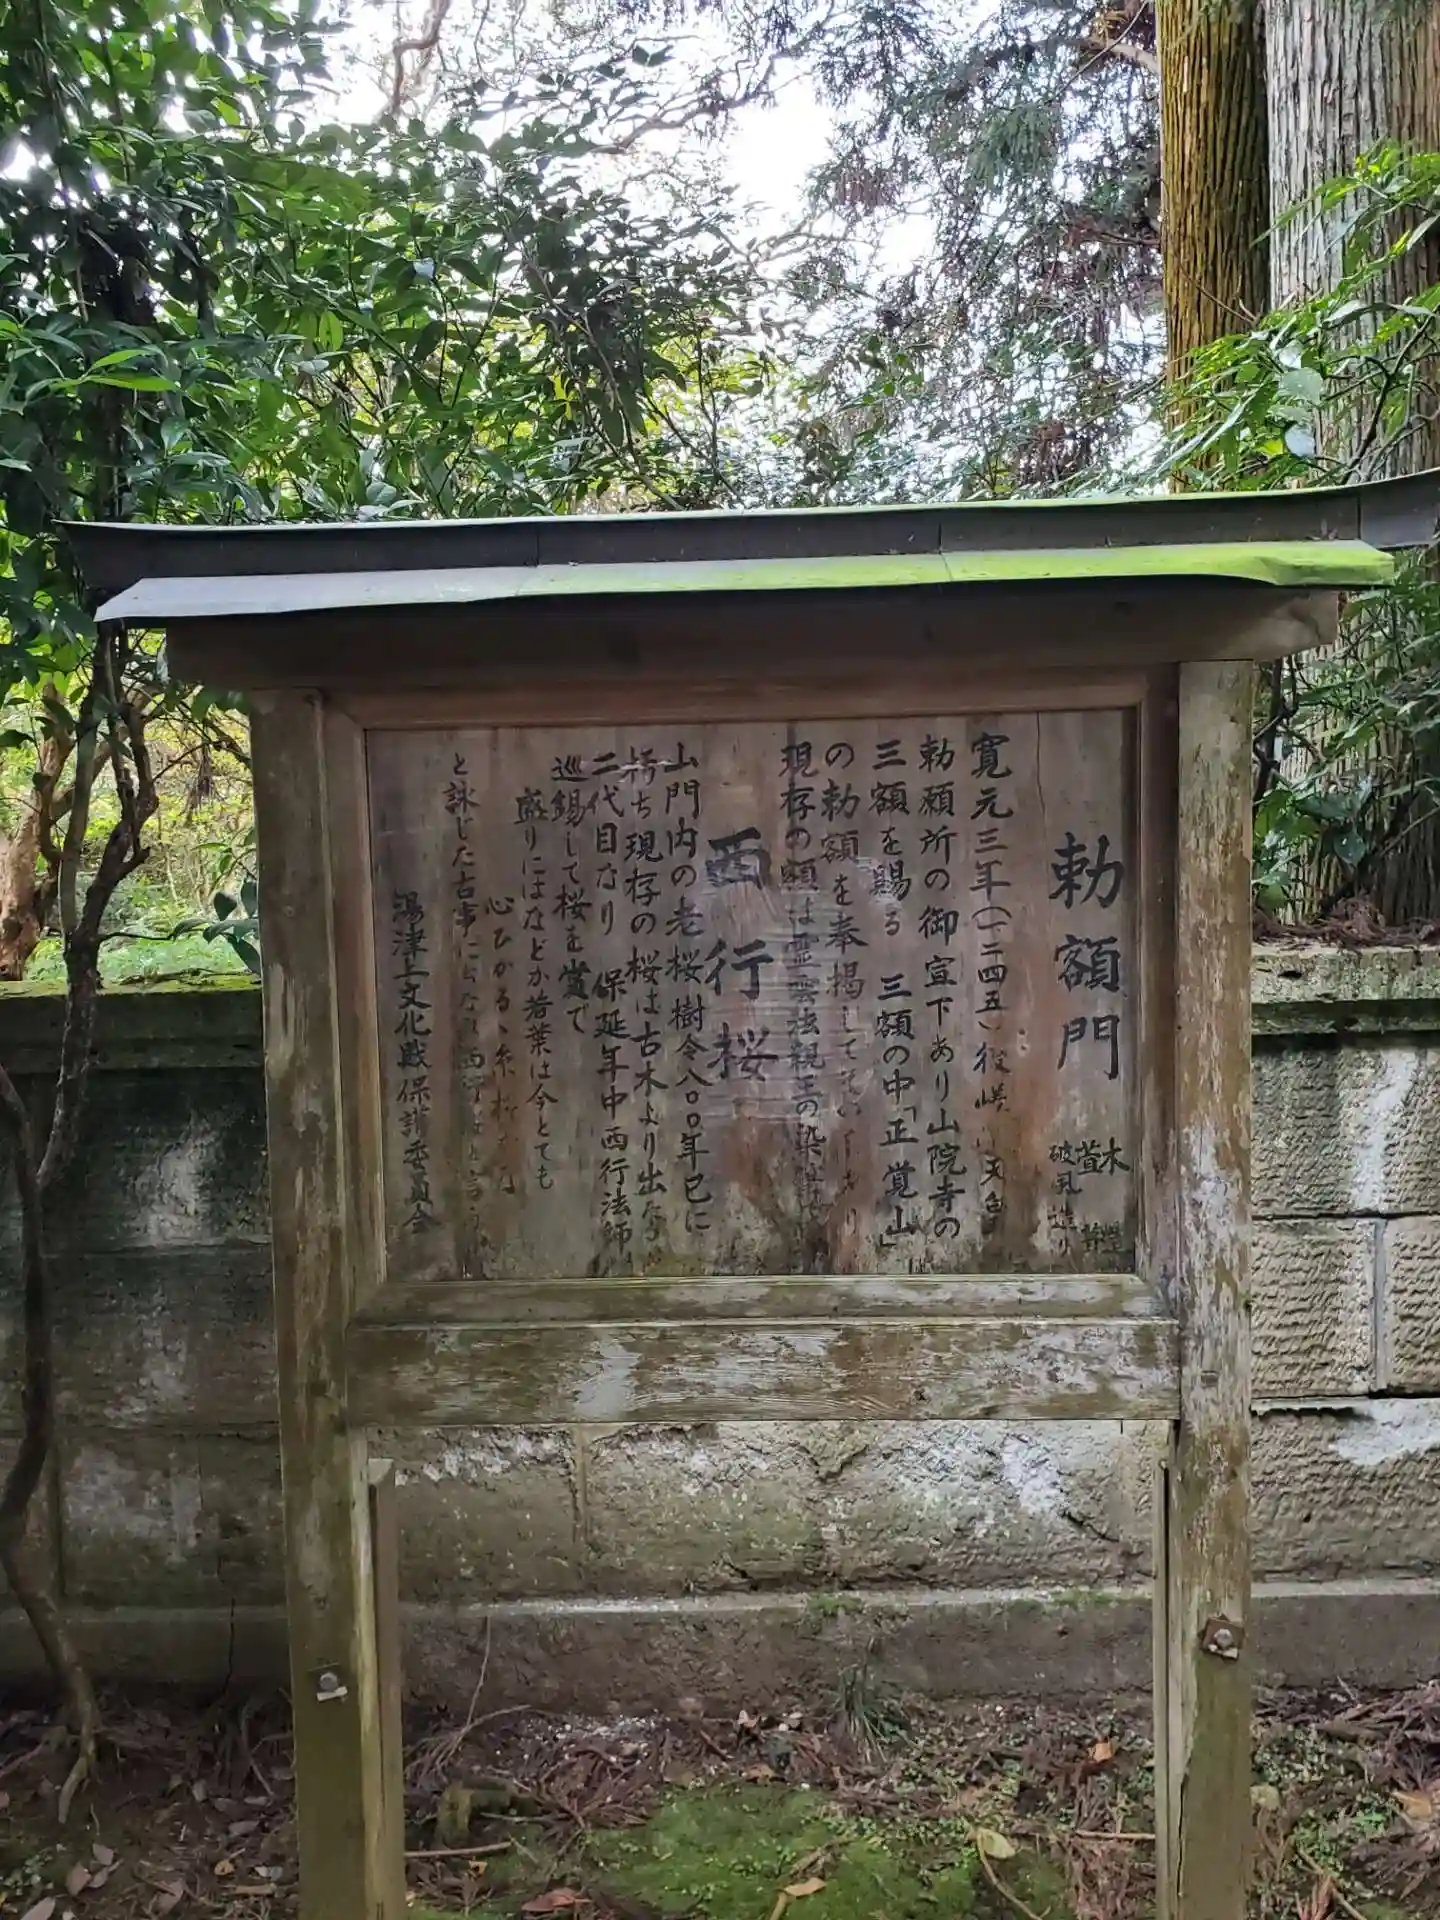 勅額門
木
萱
破風造り
寛元三年(一二四五)後嵯 天皇
勅願所の御宣下あり山院寺の
三額を賜る 三額の中「正覚山」
の勅額を奉掲して
現存の額は霊雲法親王の染
西行桜
山門内の老桜樹令八〇〇年已に
朽ち現存の桜は古木より出た
二代目なり 保延年中西行法師
巡錫して桜を賞で
盛りにはなどか若葉は今とても
心ひかるゝ糸桜かな
と詠じた古事に ちな 西行桜と言う
湯津上文化戝保護委員会